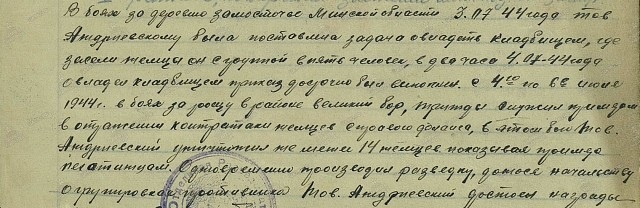 В боях за деревню Замостичос Минской области 3.07 44 года тов
Андриевскому была поставлена задача овладеть кладбищем, где
засели немцы он с группой в пять человек, в два часа 4.07-44 года
овладел кладбищем приказ досрочно был выполнен. с 4го по 6е июля
1944г. в боях за рощу в районе великий бор, трижды служил примером
в отражении контратаки немцев с правого фланга, в этом бою тов.
Андриевский уничтожил не менее 14 немцев показывая пример
пехотинцам. Одновременно производил разведку, донося начальству
о группировках противника тов. Андриевский достоен награды